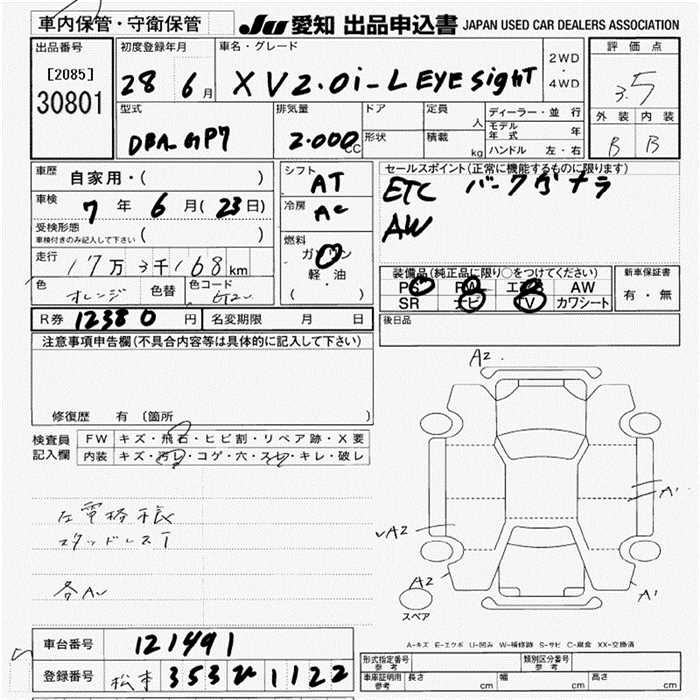 車内保管・守衛保管
JU 愛知 出品申込書 JAPAN USED CAR DEALERS ASSOCIATION
出品番号
[2085]
30801
初度登録年月
28 6月
車名・グレード
XV2.0i-L EYE SigHT
2WD
・
4WD
評価点
3.5
外装 内装
B B
型式
DBA-GP7
排気量
2.000CC
ドア
形状
定員 人
積載 kg
ディーラー・並行
モデル年式 年
ハンドル 左・右
車歴 自家用・( )
車検 7年 6月(23日)
受検形態
車検付きのみ記入して下さい ( )
走行 17万3千168km
色 オレンジ 色替 色コード
シフト AT
冷房 AC
燃料
ガソリン
軽・油
( )
セールスポイント(正常に機能するものに限ります)
ETC
AW
装備品(純正品に限り○をつけてください)
PS PW エアB AW
SR ナビ TV カワシート
新車保証書
有・無
R券 12380円 名変期限 月 日
後日品
注意事項申告欄(不具合内容等は具体的に記入して下さい)
修復歴 有 〔箇所 〕
検査員記入欄
FW キズ・飛石・ヒビ割・リペア跡・X要
内装 キズ・汚レ・コゲ・穴・スレ・キレ・破レ
スタッドレス
各AW
A2
A1
A2
A2
A1
スペア
A-キズ E-エクボ U-凹み W-補修跡 S-サビ C-腐食 XX-交換済
車台番号 121491
登録番号 松本 353 ひ 1122
形式指定番号 参考
類別区分番号 参考
車庫証明用 参考 長さ cm 幅 cm 高さ cm